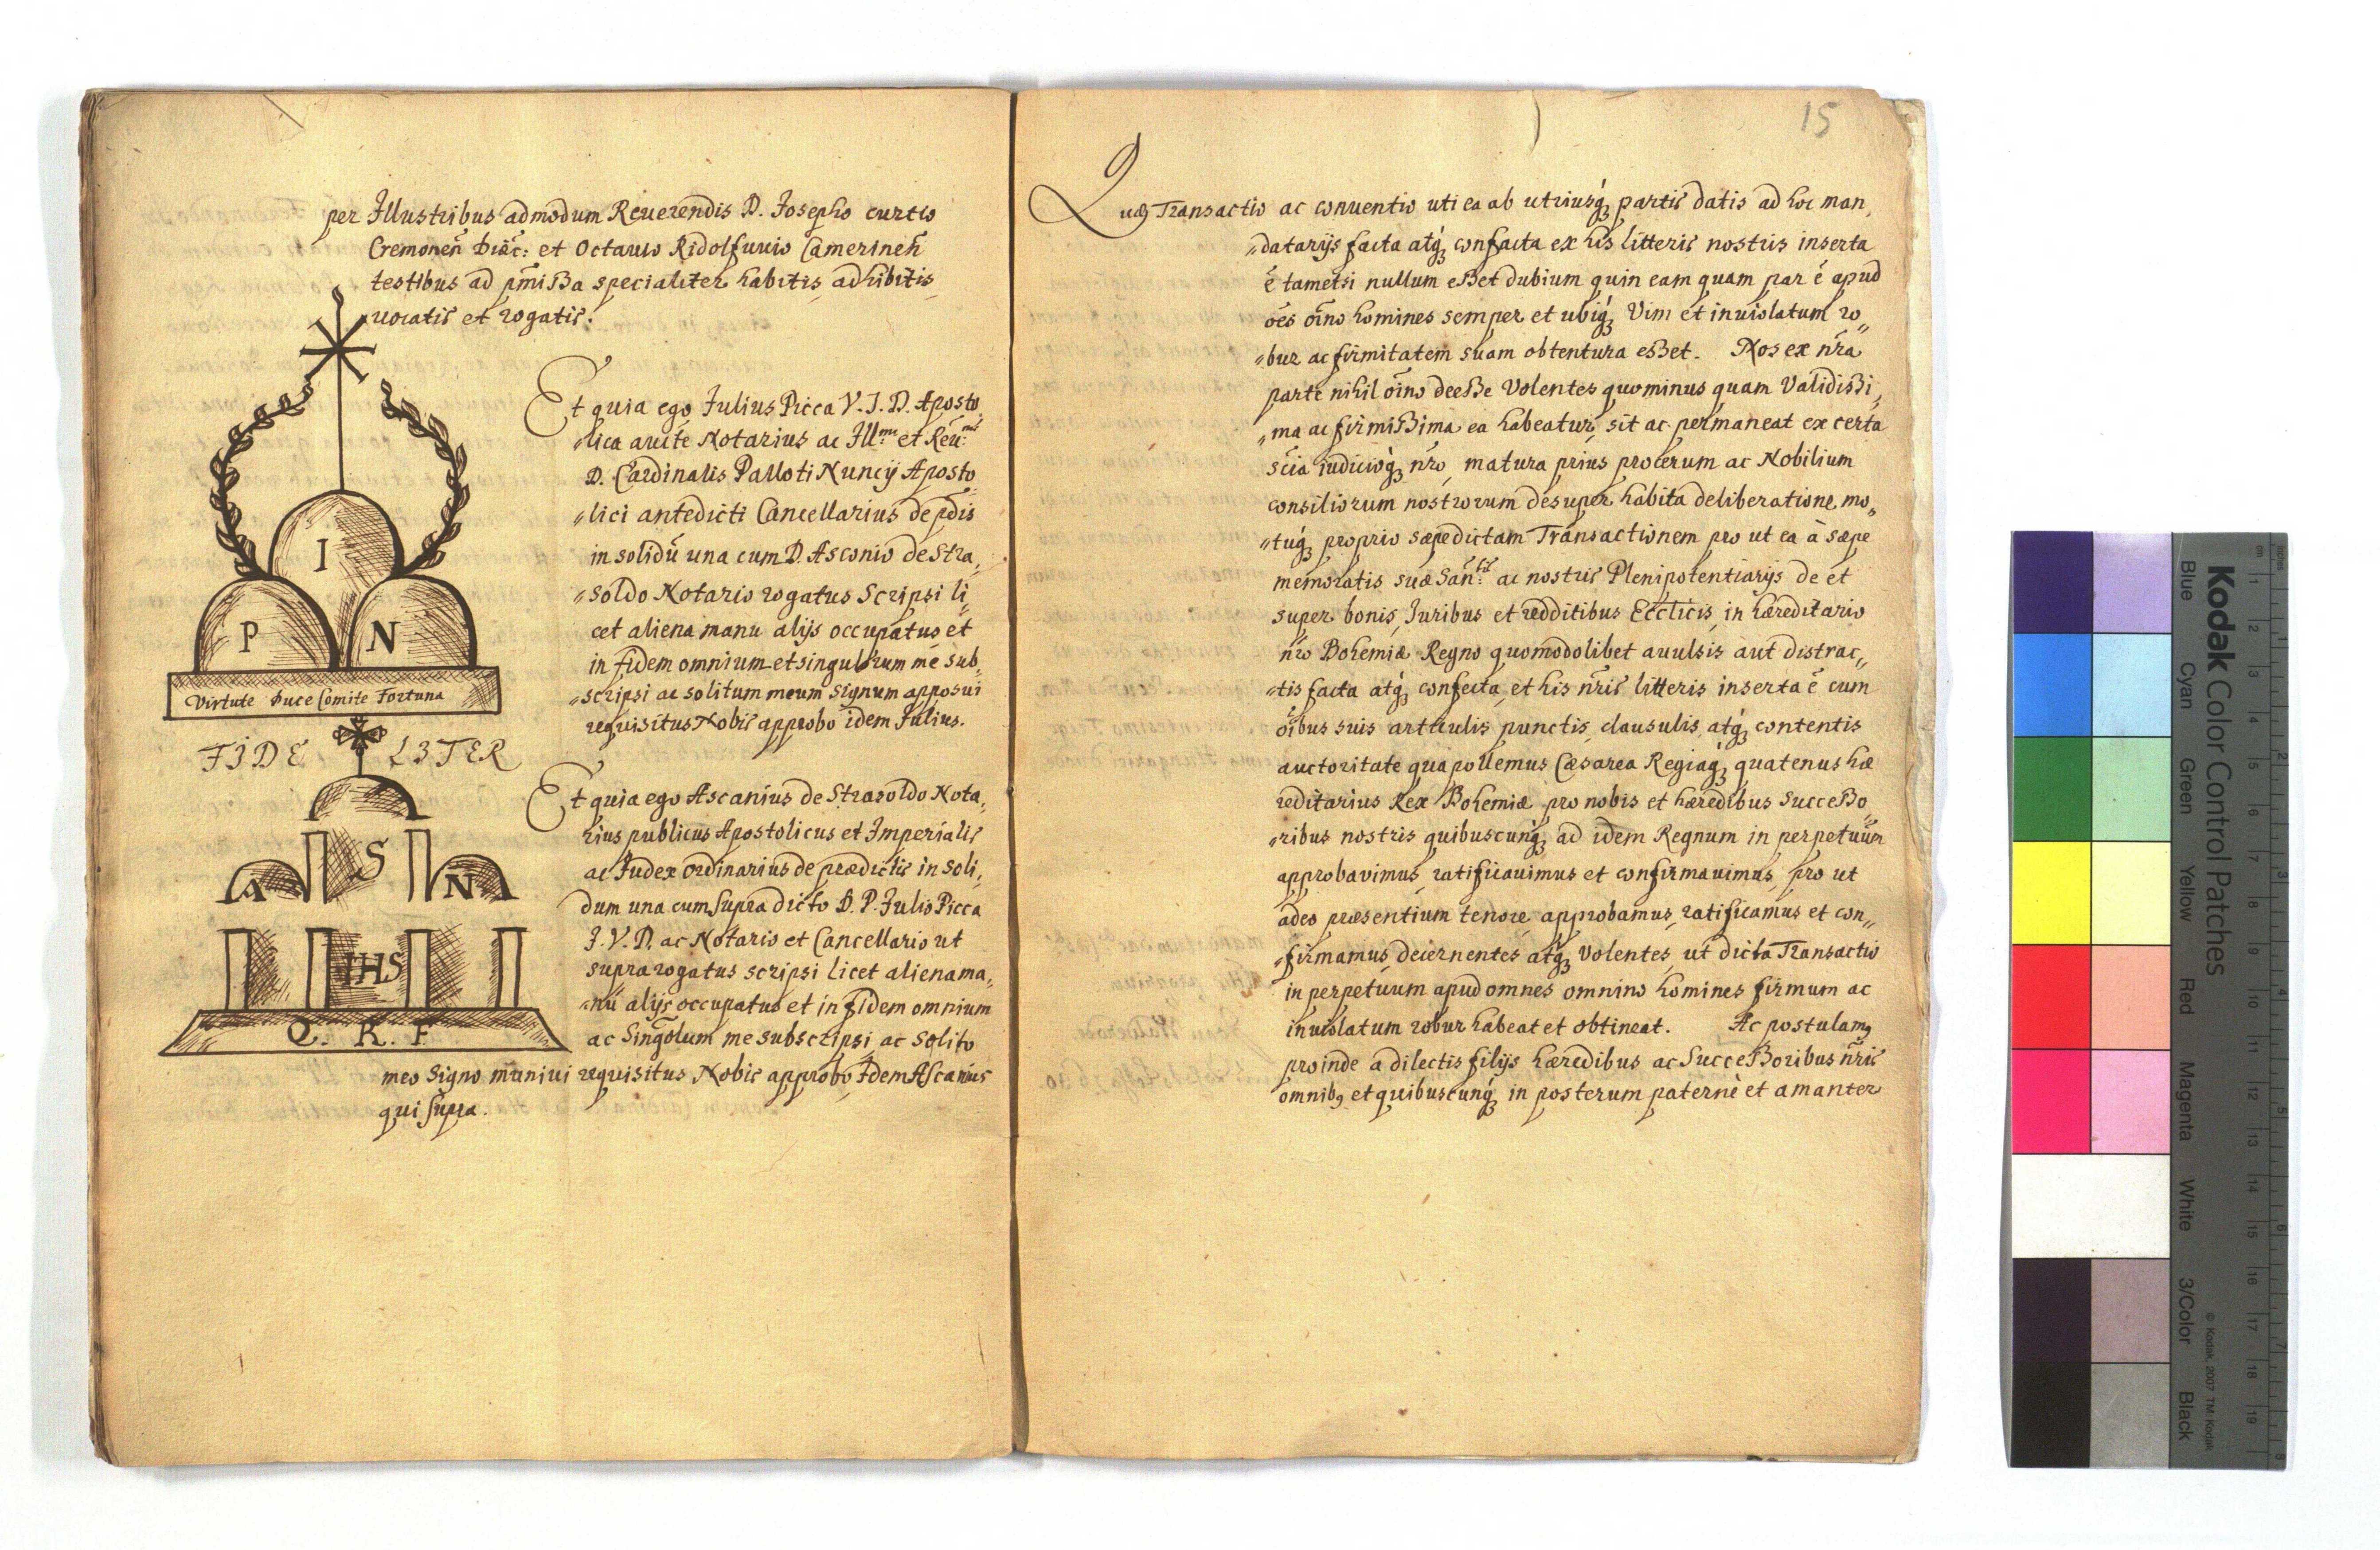 per Illustribus admodum Reuerendis D. Josepho curtio
Cremoneñ Diæc: et Octauio Ridolfunio Camerineñ
testibus ad p̄mißa specialiter habitis, adhibitis,
uocatis et rogatis.
Et quia ego Julius Picca V. J. D. Aposto
„lica aucte Notarius ac Illmi et Reumi
D. Cardinalis Palloti Nuncij Aposto
„lici antedicti Cancellarius de pdis
in solidū una cum D. Asconio de Stra,
„soldo Notario rogatus Scripsi li
cet aliena manu alijs occupatus et
in fidem omnium et singulorum me sub,
„scripsi ac solitum meum signum apposui
requisitus Nobis approbo idem Julius.
I
P N
Virtute Duce Comite Fortuna
FIDE LITER
S
A N
IHS
Q. R. F
Et quia ego Ascanius de Strasoldo Nota,
rius publicus Apostolicus et Imperialis
ac Judex ordinarius de prædictis in soli,
dum una cum supra dicto D. P. Julio Picca
J. V. D. ac Notario et Cancellario ut
supra rogatus scripsi licet aliena ma,
„nū alijs occupatus et in fidem omnium
ac Singōlum me subscripsi ac solito
meo Signo muniui requisitus Nobis approbo Idem Ascanius
qui supra.
15
Quæ Transactio ac conuentio uti ea ab utriusq́ʒ partis datis ad hoc man,
„datarijs facta atq́ʒ confacta ex his litteris nostris inserta
ē tametsi nullum eßet dubium quin eam quam par ē apud
oēs oīno homines semper et ubiq́ʒ Vim et inuiolatum ro„
„bur ac firmitatem suam obtentura eßet. Nos ex n̄ra
parte nihil oīno deeße Volentes quominus quam Validißi„
„ma ac firmißima ea habeatur, sit ac permaneat ex certa
scīa iudicioq́ʒ n̄ro, matura prius procerum ac Nobilium
consiliorum nostrorum desuper habita deliberatione, mo„
„tuq́ʒ proprio sæpedictam Transactionem pro ut ea à sæpe
memoratis suæ San:tis ac nostris Plenipotentiarijs de et
super bonis, Juribus et redditibus Ecclicis, in hæreditario
n̄ro Bohemiæ Regno quomodolibet auulsis aut distrac„
„tis facta atq́ʒ confecta, et his n̄ris litteris inserta ē cum
oībus suis articulis punctis, clausulis, atq́ʒ contentis
auctoritate qua pollemus Cæsarea Regiaq́ʒ quatenus hæ
reditarius Rex Bohemiæ pro nobis et hæredibus Succeßo
„ribus nostris quibuscunq́ʒ ad idem Regnum in perpetuūm
approbavimus, ratificauimus et confirmauimus, pro ut
adeo præsentium tenore approbamus, ratificamus et con„
„firmamus, decernentes atq́ʒ Volentes, ut dicta Transactio
in perpetuum apud omnes omnino homines firmum ac
inuiolatum robur habeat et obtineat. Ac postulamꝰ
proinde a dilectis filijs hæredibus ac Succeßoribus n̄ris
omnibꝰ et quibuscunq́ʒ in posterum paternè et amanter
Kodak Color Control Patches
Blue Cyan Green Yellow Red Magenta White 3/Color Black
© Kodak, 2007 TM: Kodak